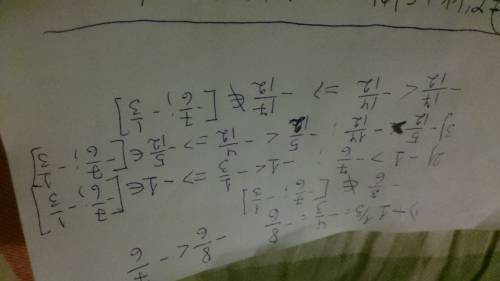 1) -1 1/3 = -4/3 = -8/6   -8/6 < -7/6
-8/6 ∉ [-7/6; -1/3]
2) -1 > -7/6; -1 < -1/3 => -1 ∈ [-7/6; -1/3]
3) -5/12 > -14/12; -5/12 < -4/12 => -5/12 ∈ [-7/6; -1/3]
-17/12 < -14/12 => -17/12 ∉ [-7/6; -1/3]